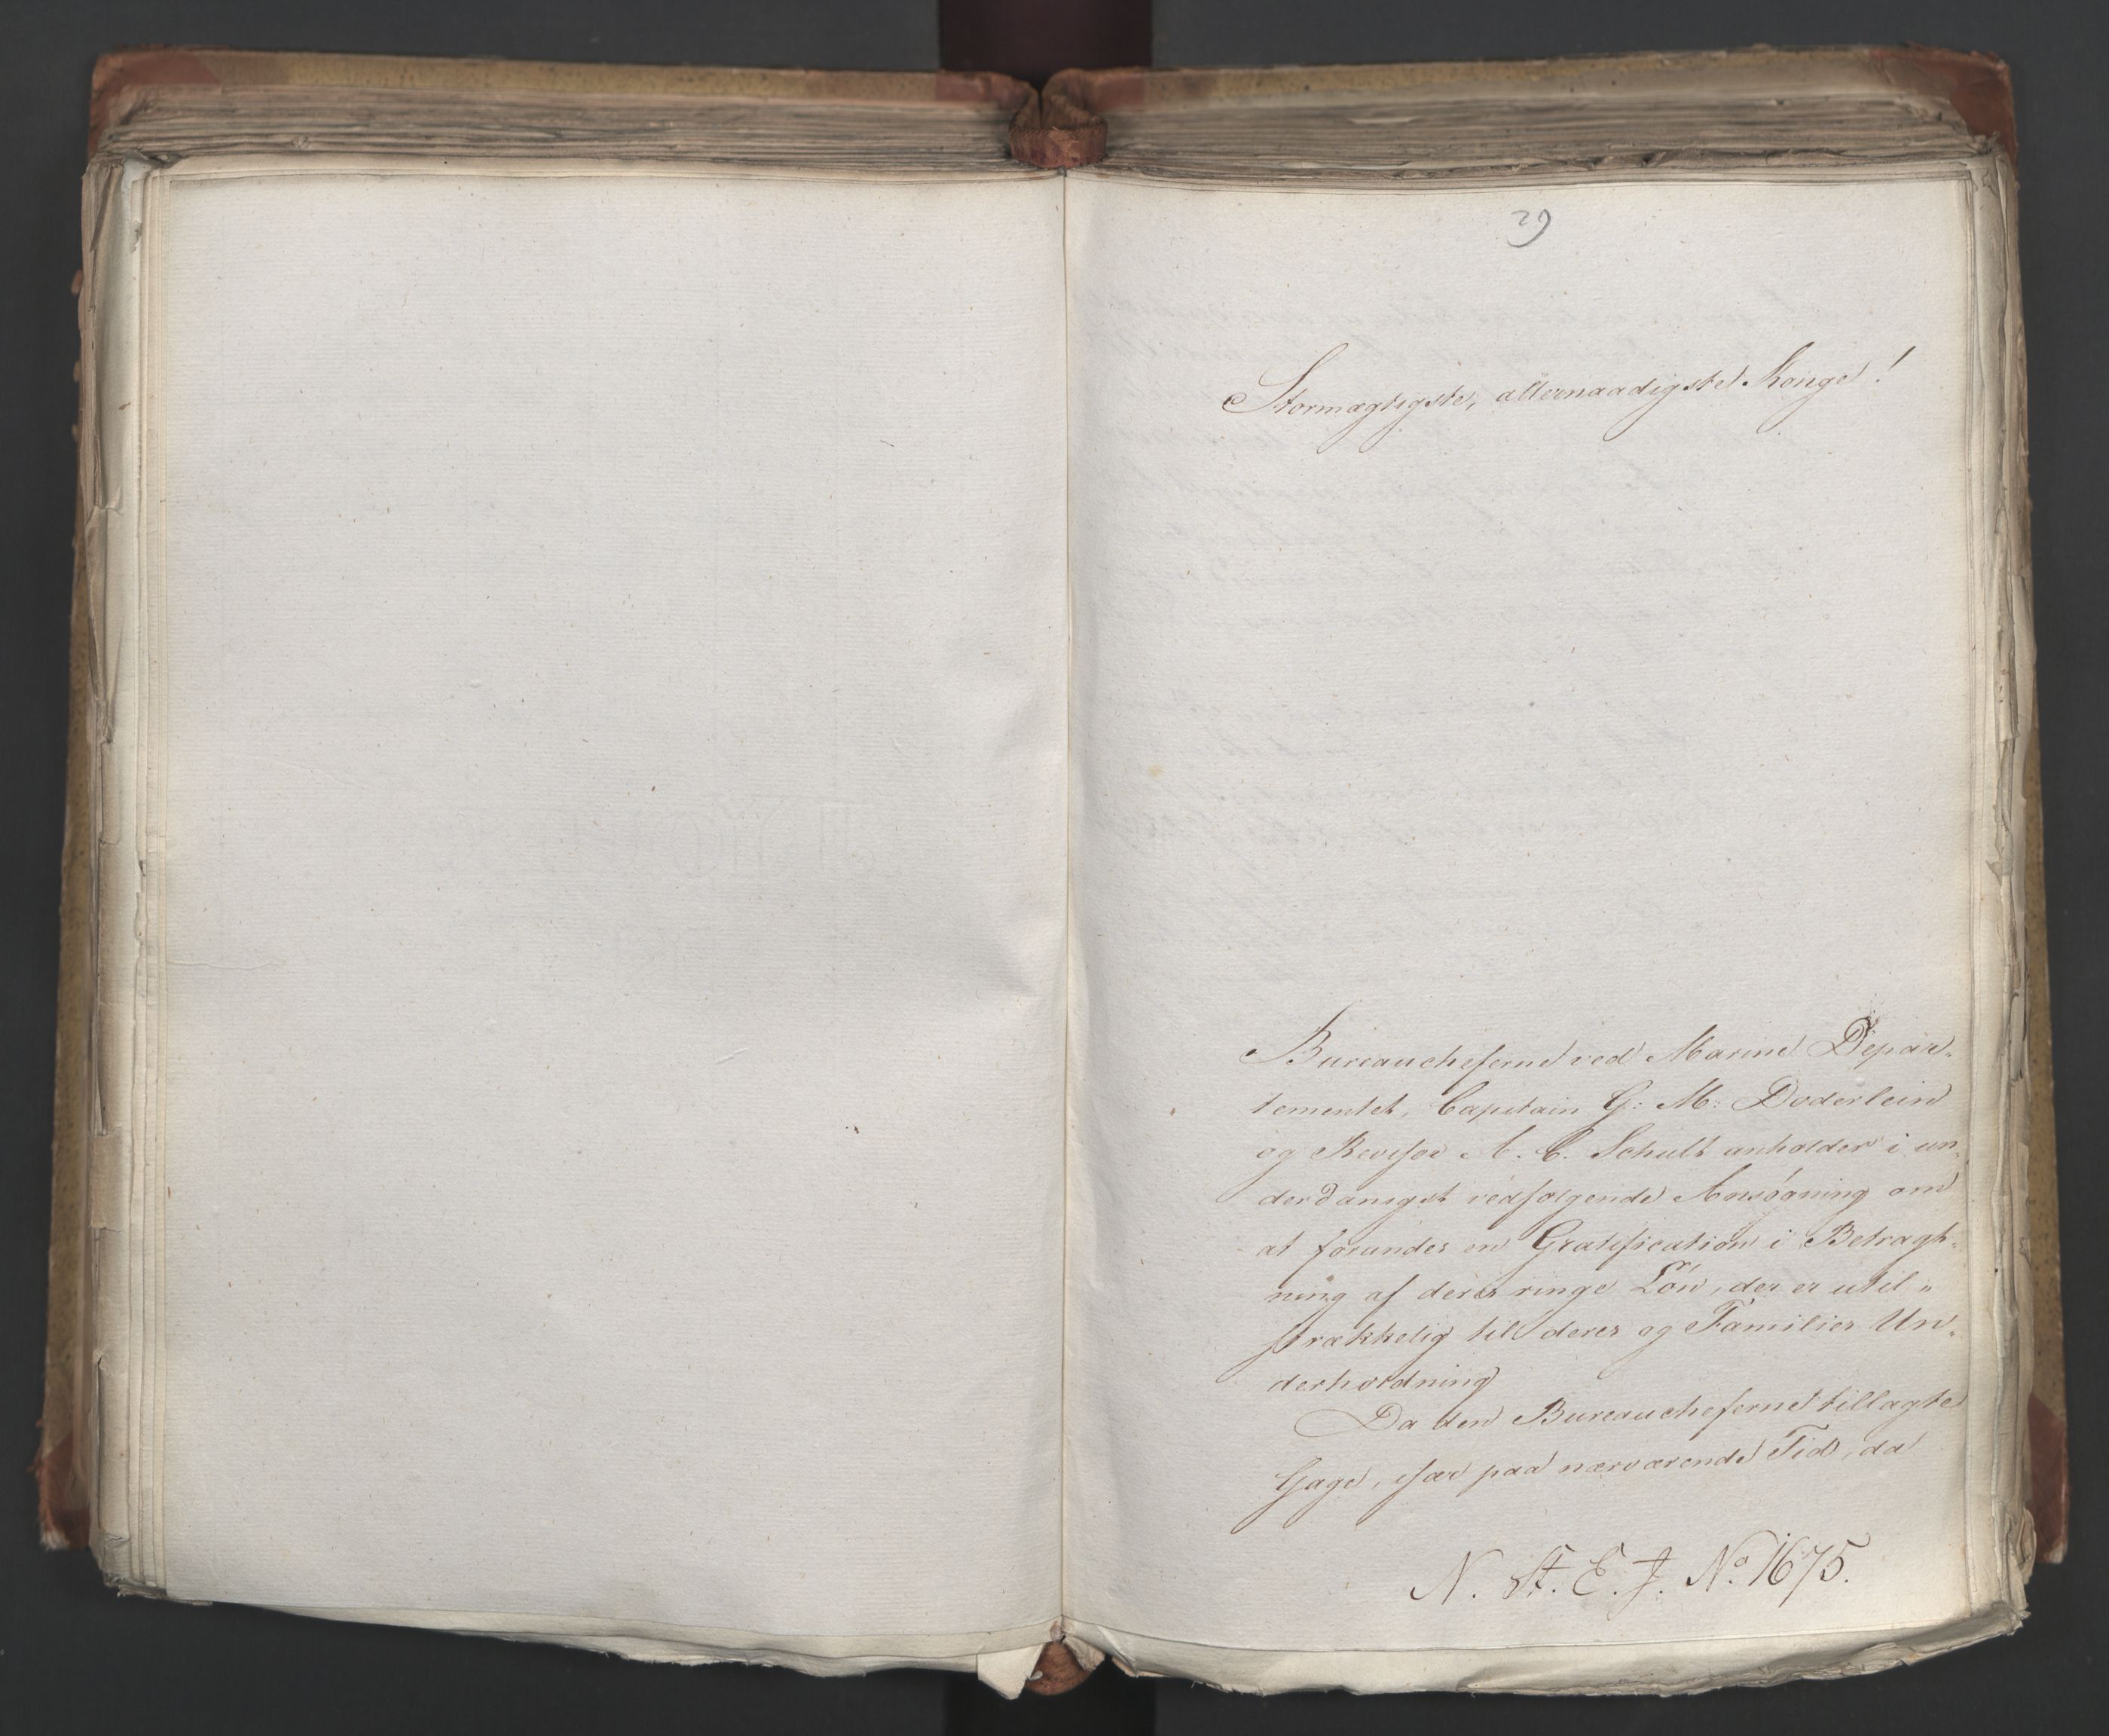 29
Stormægtigste, allernaadigste Konge!
Bureaucheferne ved Marine Depar-
tementet, Capitain G: M: Doderlein
og Revisor A. C. Schult anholder i un-
derdanigst vedfølgende Ansøgning om
at forundes en Gratification i Betragt-
ning af deres ringe Lön, der er util-
strækkelig til deres og Families Un-
derholdning
Da den Bureaucheferne tillagte
Gage, især paa nærværende Tid, da
N. St. E. J. No 1675.